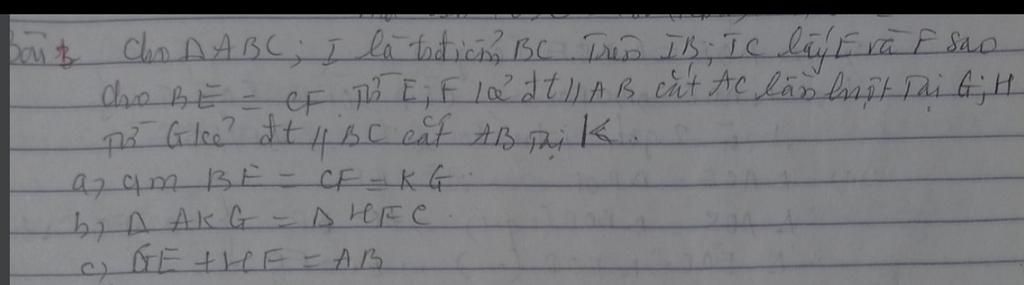 Bài Cho Δ ABC; I là tđiểm BC Trên IB; IC lấy E và F sao
cho BE = CF Từ E; F kẻ đt // AB cắt AC lần lượt Tại G; H
Từ G kẻ đt // BC cắt AB Tại K.
a, qm BE = CF = KG
b, Δ AKG = Δ HFC
c, GE + HF = AB